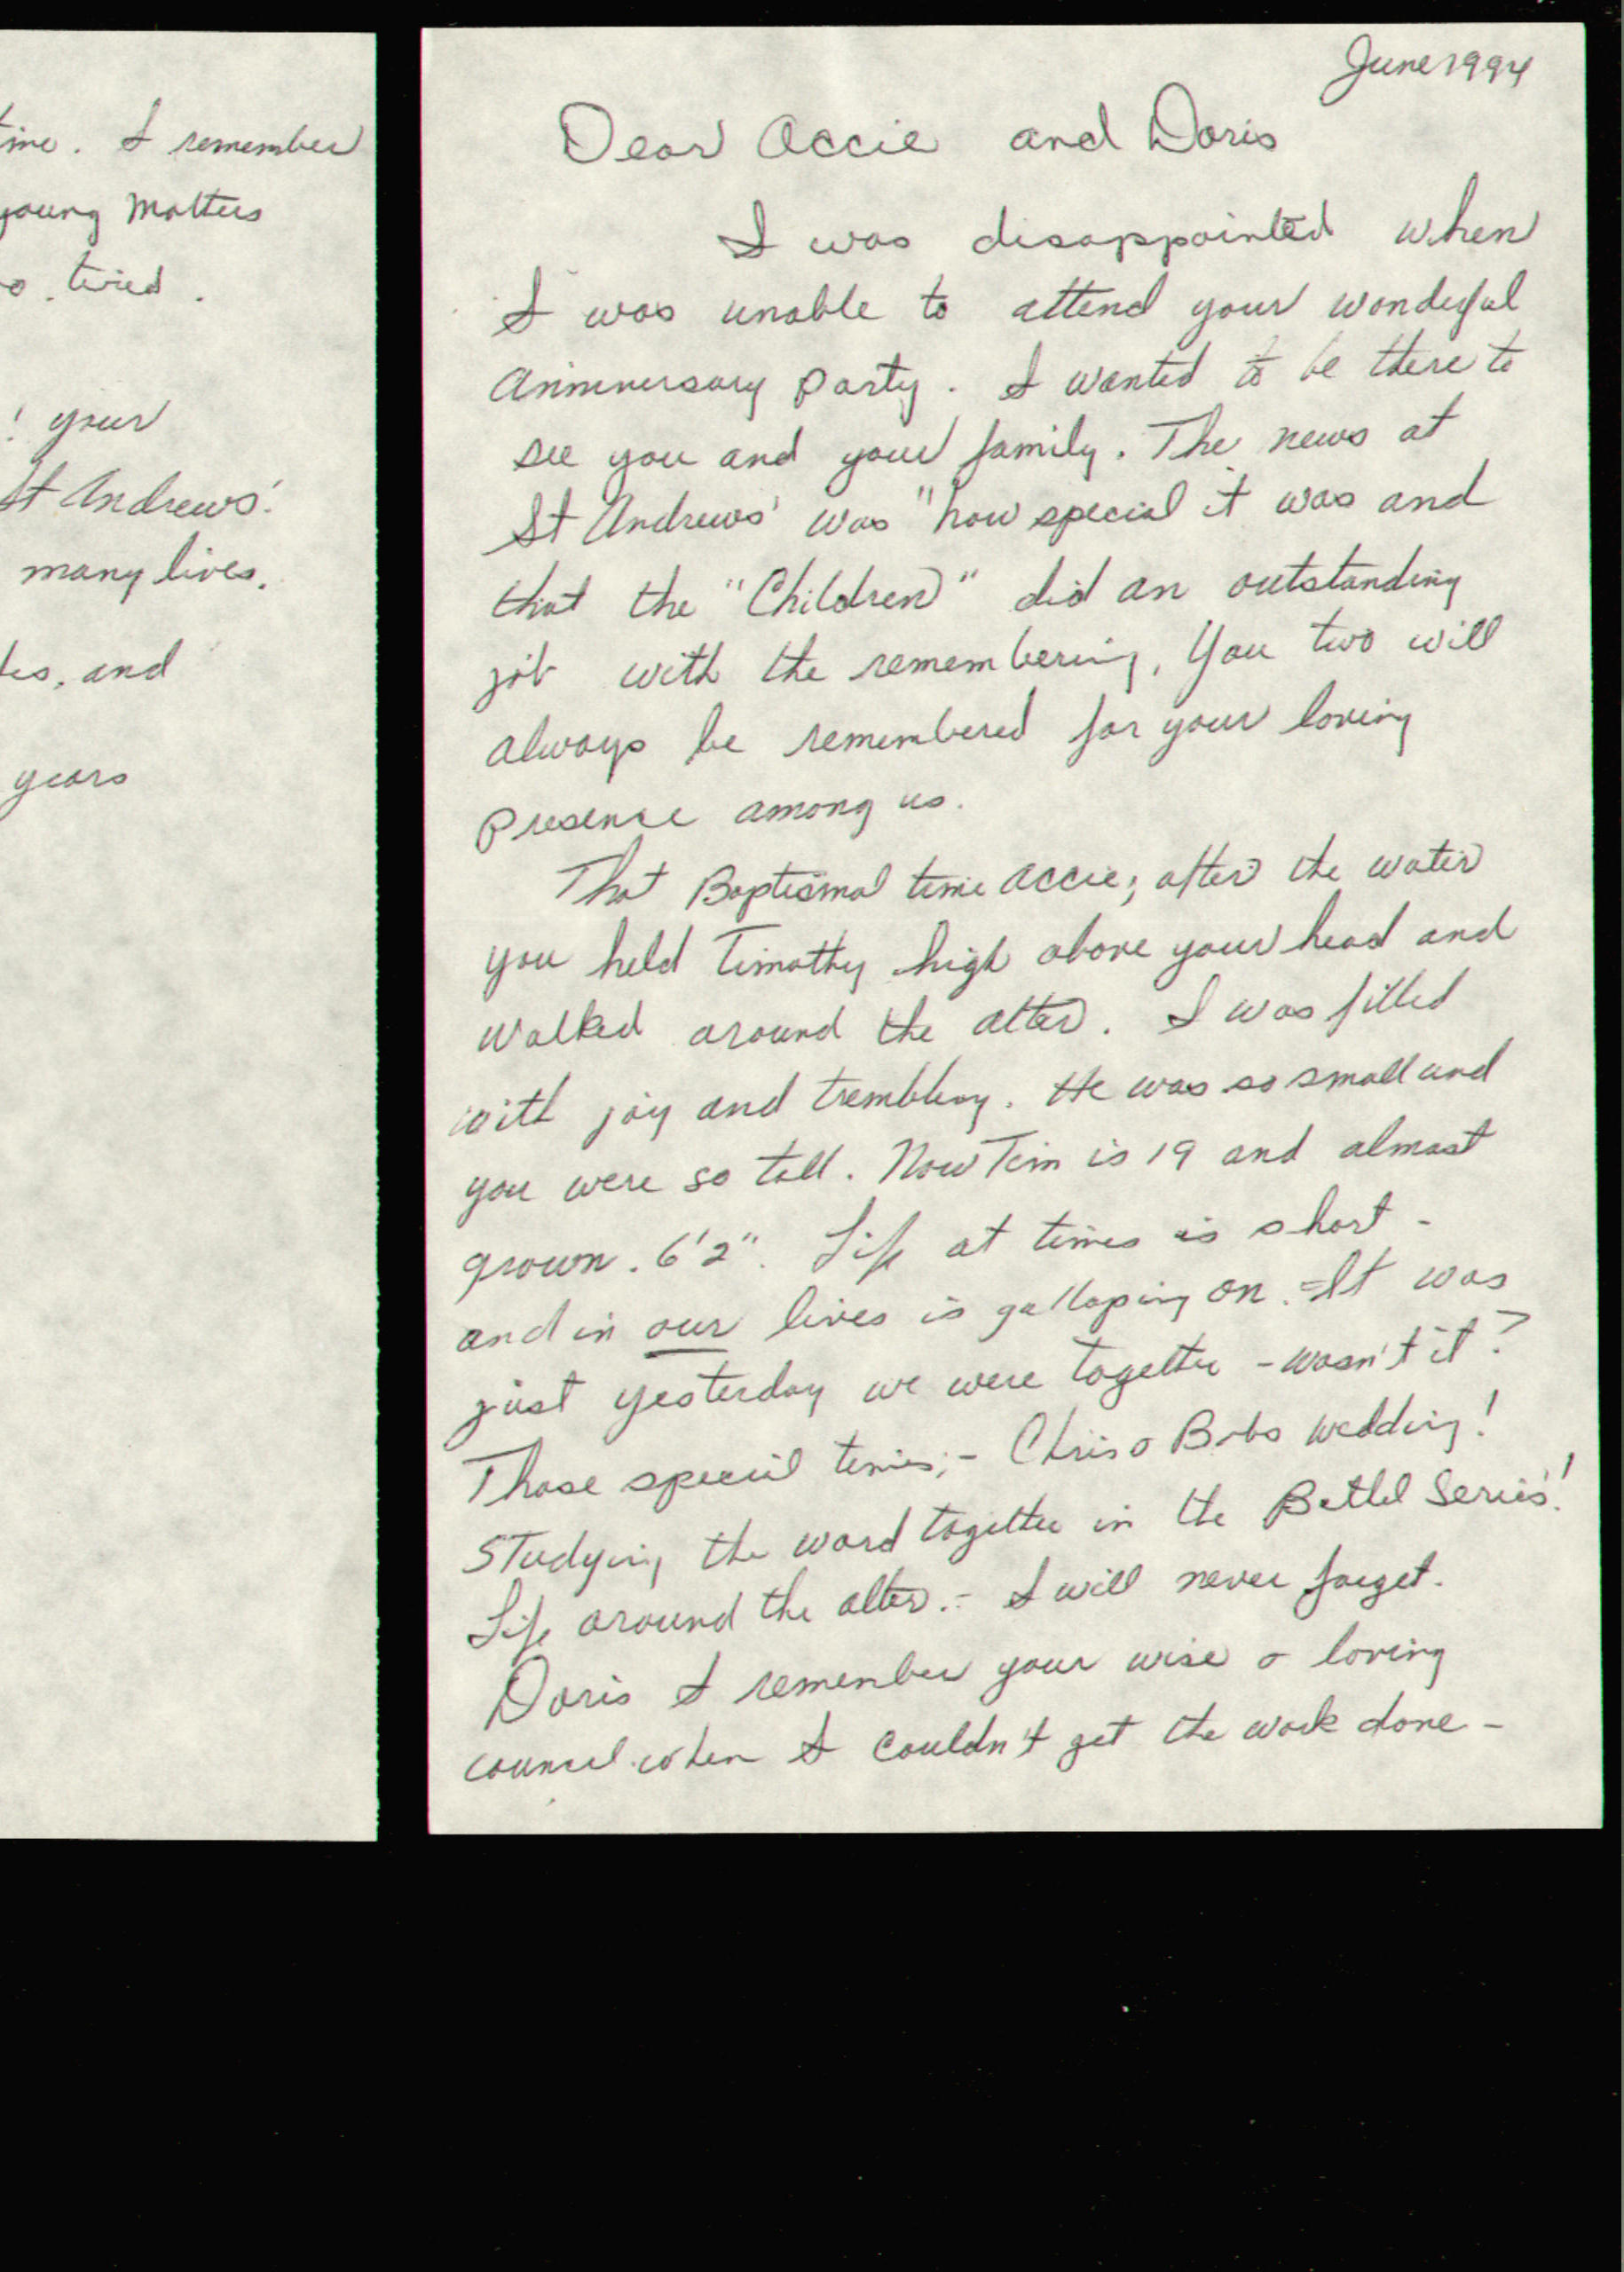 ime. I remember
young Mothers
o tired.
! your
St Andrews'.
many lives.
tes, and
years
June 1994
Dear Accie and Doris
I was disappointed when
I was unable to attend your wonderful
Anniversary party. I wanted to be there to
see you and your family. The news at
St Andrews' was "how special it was and
that the "Children" did an outstanding
job with the remembering. You two will
always be remembered for your loving
presence among us.
That Baptismal time Accie; after the water
you held Timothy high above your head and
walked around the alter. I was filled
with joy and trembling. He was so small and
you were so tall. Now Tim is 19 and almost
grown. 6'2". Life at times is short -
and in our lives is galloping on. - It was
just yesterday we were together - wasn't it?
Those special times; - Chris & Bobs wedding!
Studying the word together in the Bethel Series!
Life around the alter. - I will never forget.
Doris I remember your wise & loving
counsel when I couldn't get the work done -